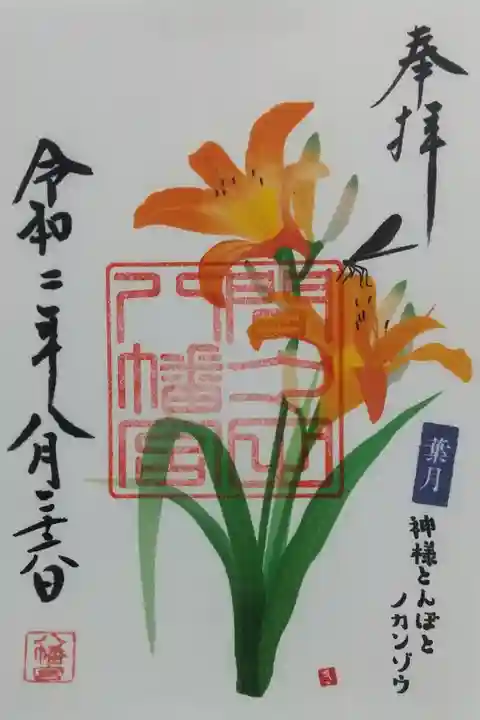 奉拝
八幡宮
葉月
神様とんぼと
ノカンゾウ
令和二年八月二十八日
八幡宮